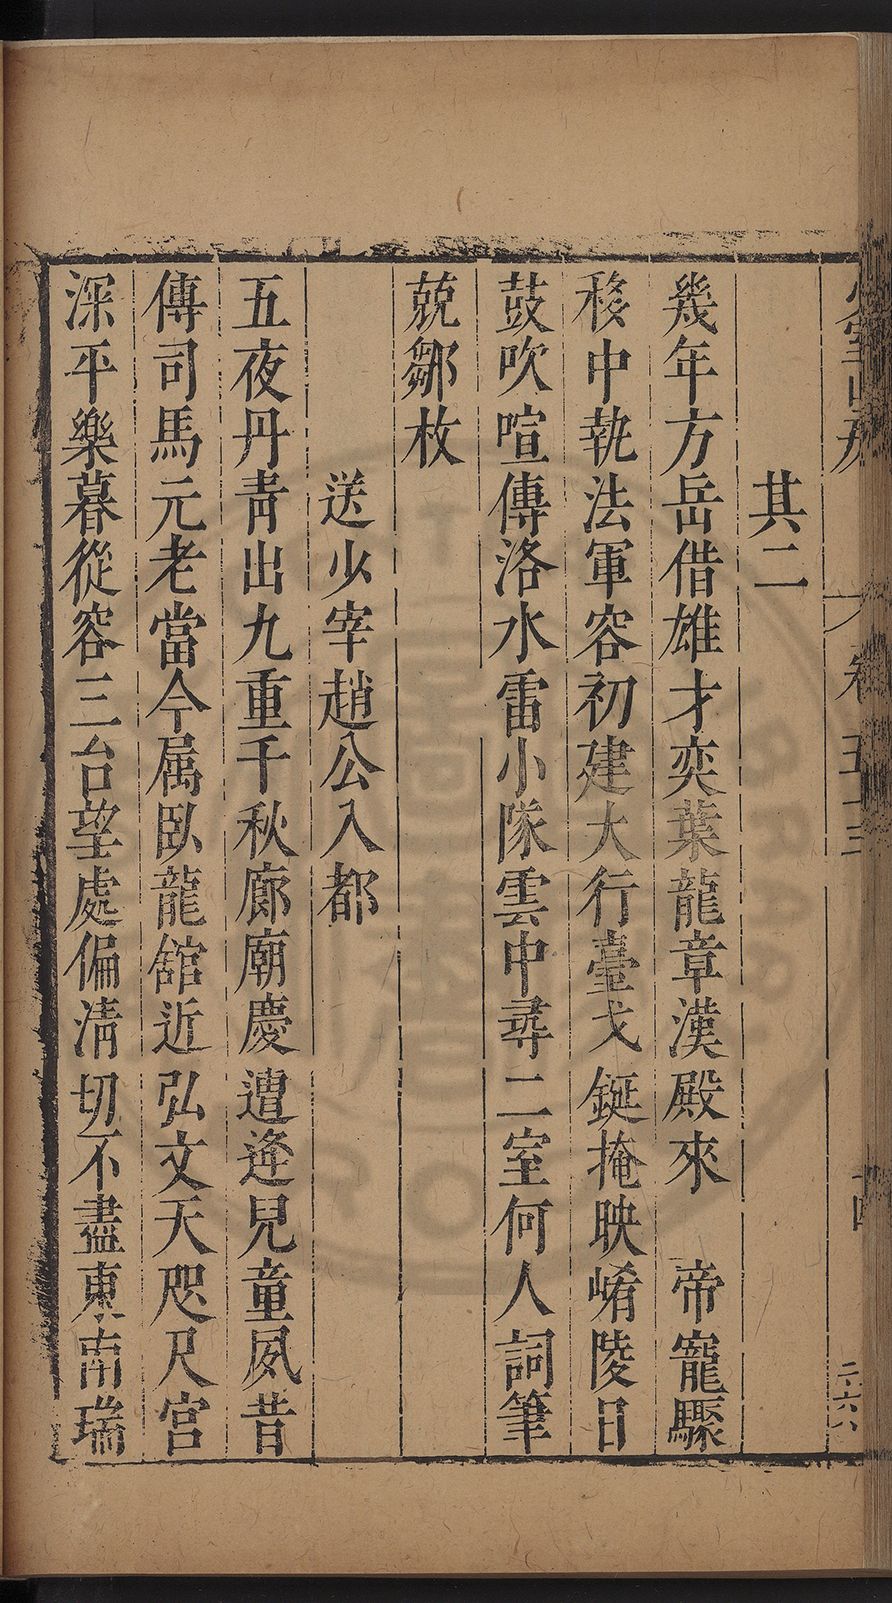 卷五十三
其二
幾年方岳借雄才奕葉龍章漢殿來　帝寵驟
移中執法軍容初建大行臺戈鋋掩映崤陵日
鼓吹喧傳洛水雷小隊雲中尋二室何人詞筆
兢鄒枚
送少宰趙公入都
五夜丹靑出九重千秋廊廟慶遭逢兒童夙昔
傳司馬元老當今属臥龍舘近弘文天咫尺宮
深平樂暮從容三台望處偏淸切不盡東南瑞